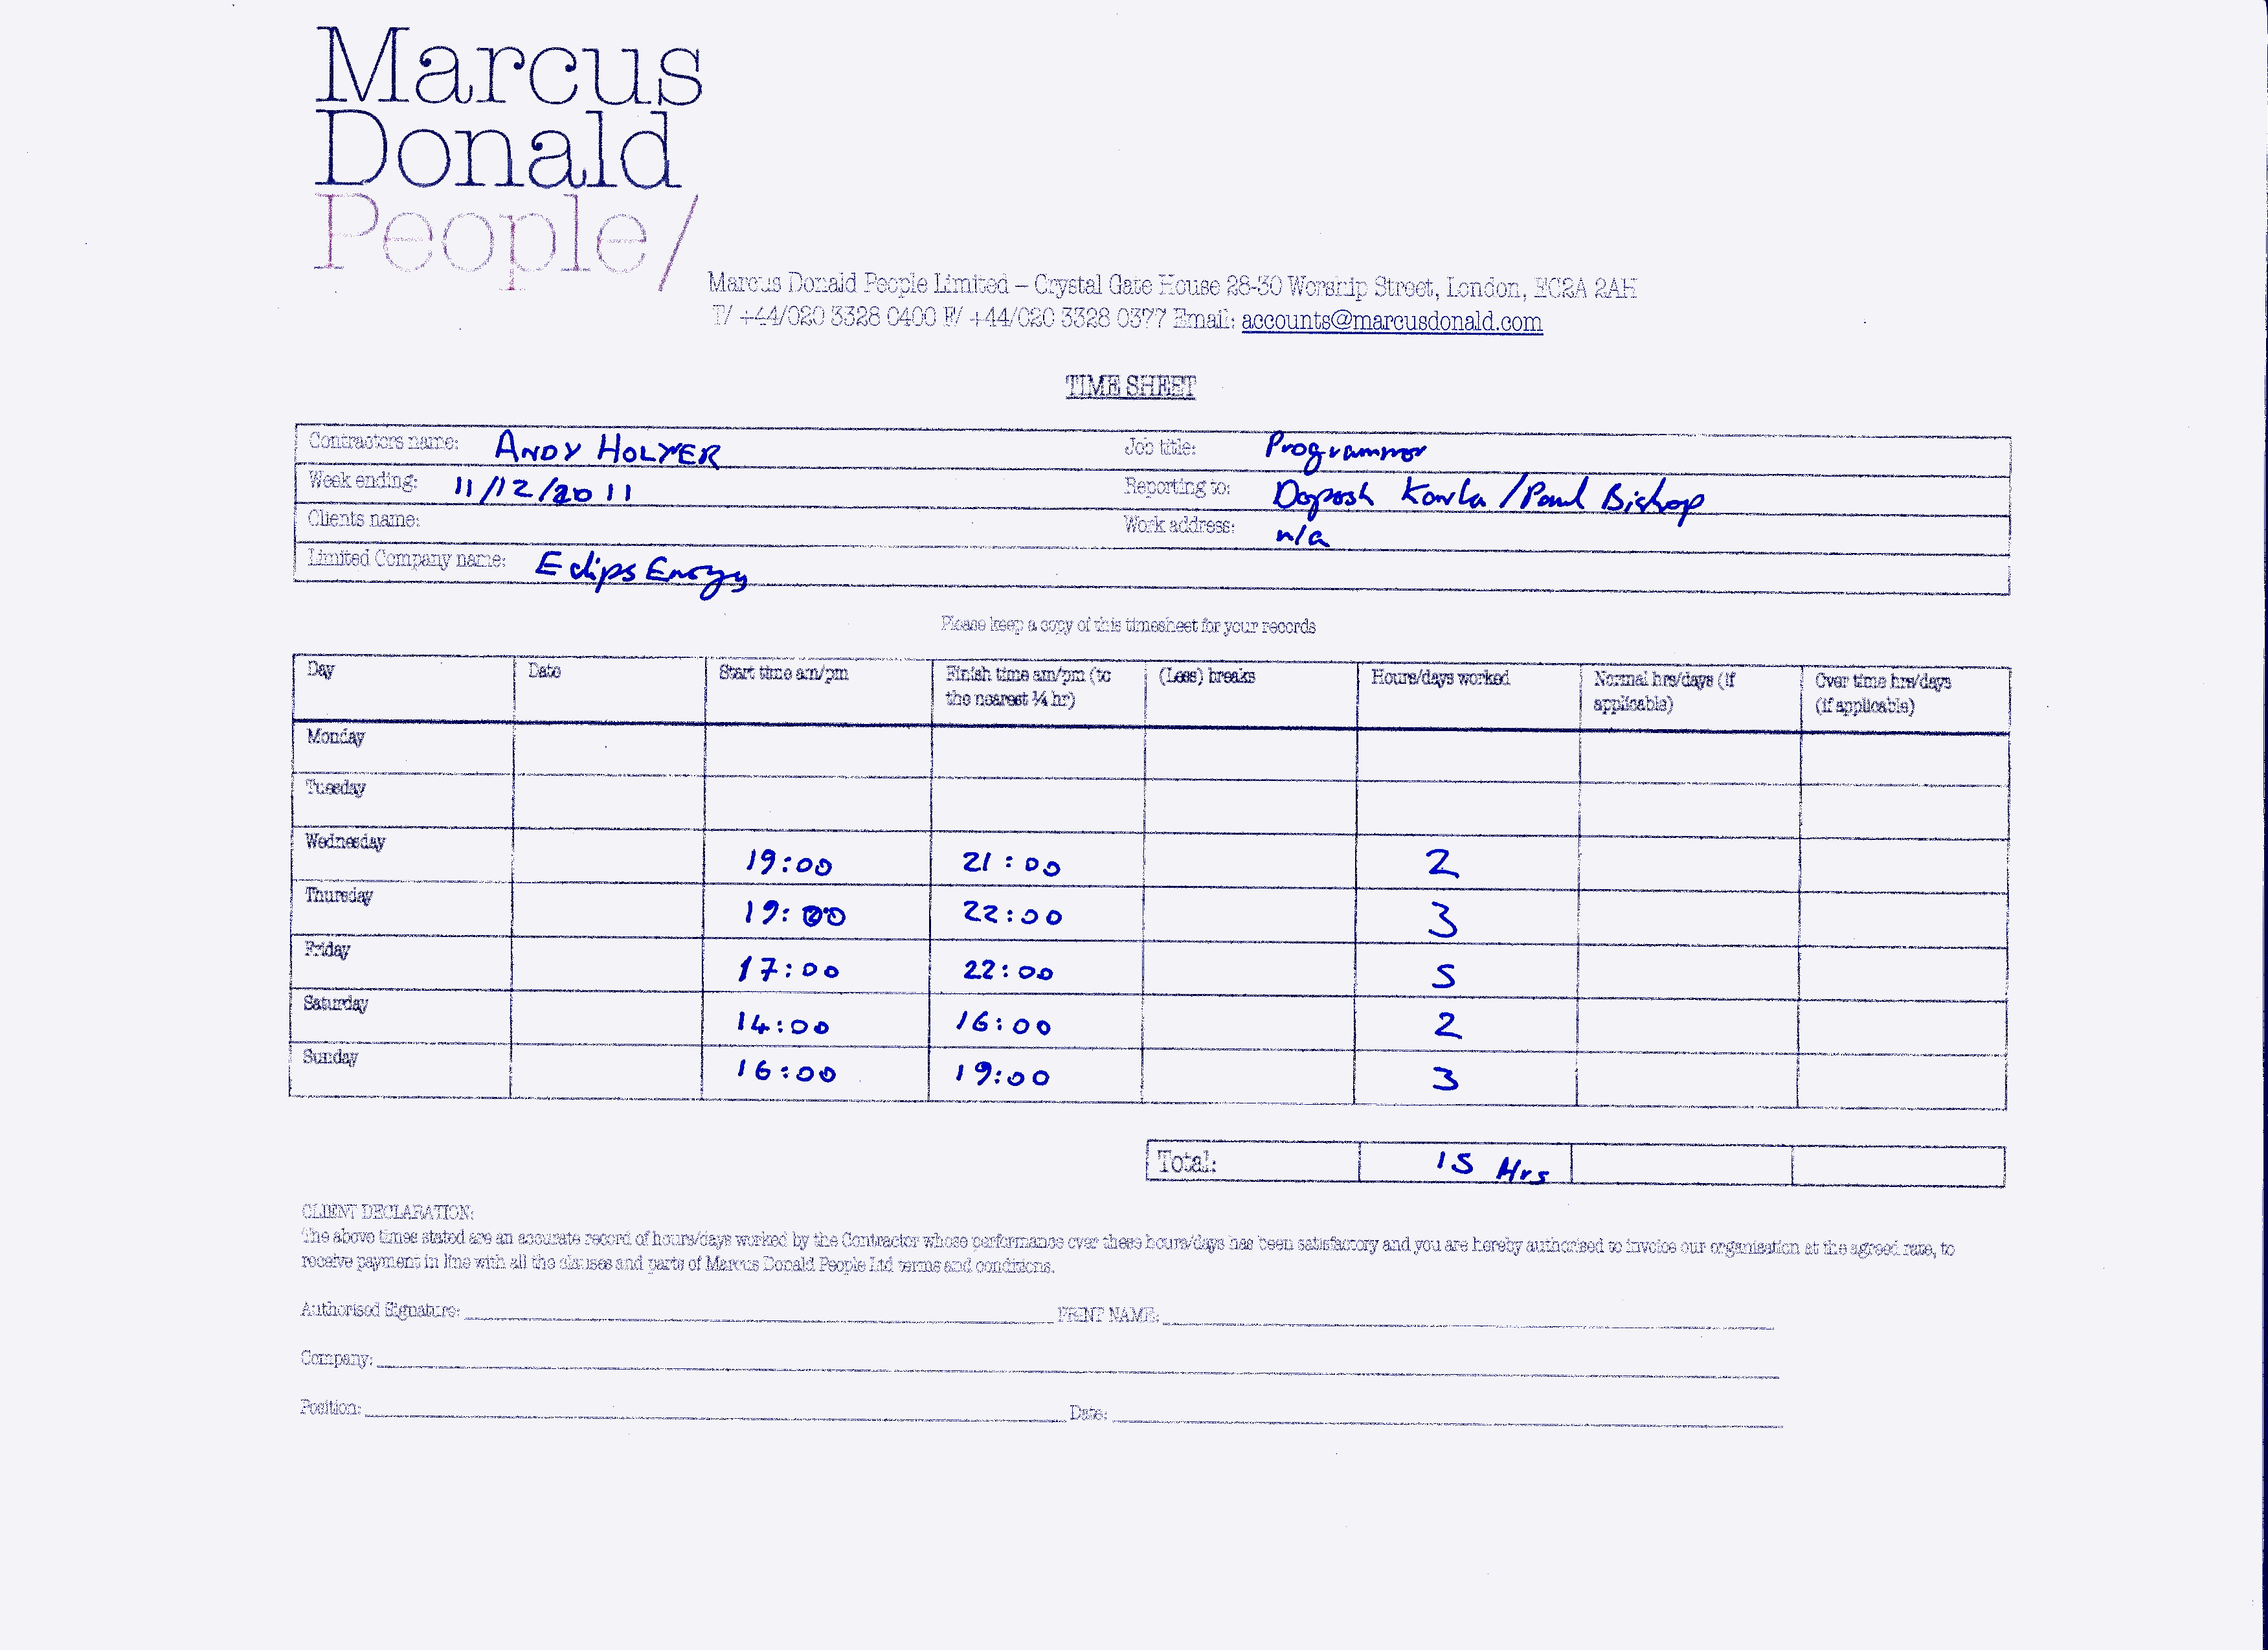 Marcus
Donald
People/
Marcus Donald People Limited – Crystal Gate House 28-30 Worship Street, London, EC2A 2AH
T/ +44/020 3328 0400 F/ +44/020 3328 0377 Email: accounts@marcusdonald.com
TIME SHEET
Contractors name: ANDY HOLYER Job title: Programmer
Week ending: 11/12/2011 Reporting to: / Paul Bishop
Clients name: Work address: n/a
Limited Company name: Eclips Energy
Please keep a copy of this timesheet for your records
Day Date Start time am/pm Finish time am/pm (to the nearest ¼ hr) (Less) breaks Hours/days worked Normal hrs/days (if applicable) Over time hrs/days (if applicable)
Monday
Tuesday
Wednesday 19:00 21:00 2
Thursday 19:00 22:00 3
Friday 17:00 22:00 5
Saturday 14:00 16:00 2
Sunday 16:00 19:00 3
Total: 15 Hrs
CLIENT DECLARATION:
The above times stated are an accurate record of hours/days worked by the Contractor whose performance over these hours/days has been satisfactory and you are hereby authorised to invoice our organisation at the agreed rate, to
receive payment in line with all the clauses and parts of Marcus Donald People Ltd terms and conditions.
Authorised Signature: PRINT NAME:
Company:
Position: Date: